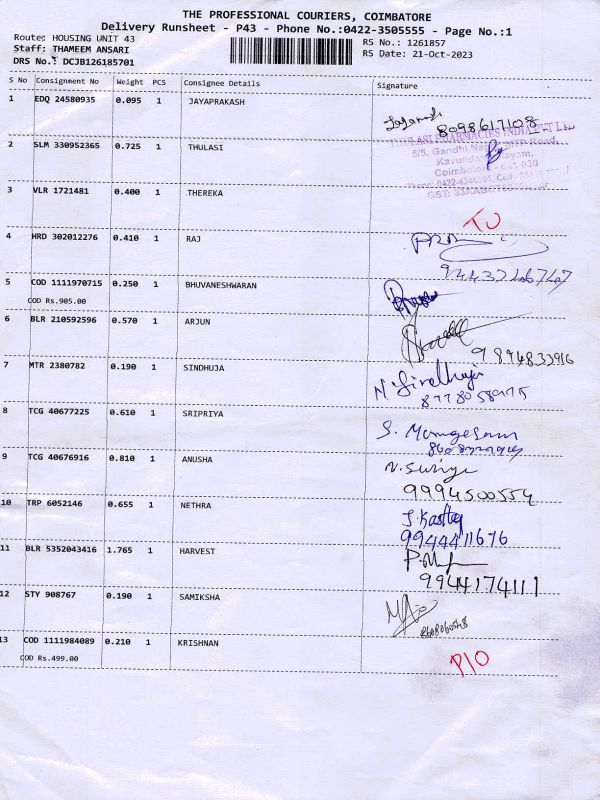 THE PROFESSIONAL COURIERS, COIMBATORE
Delivery Runsheet - P43 - Phone No.:0422-3505555 - Page No.:1
Route: HOUSING UNIT 43
RS No.: 1261857
Staff: THAMEEM ANSARI
RS Date: 21-Oct-2023
DRS No.: DCJB126185701
S No Consignment No Weight PCS Consignee Details Signature
1 EDQ 24580935 0.095 1 JAYAPRAKASH
8098617108
THULASI PHARMACIES INDIA PVT LTD
2 SLM 330952365 0.725 1 THULASI
5/5, Gandhi Nagar, MTP Road,
Kavundampalayam,
Coimbatore - 641 030
3 VLR 1721481 0.400 1 THEREKA
4 HRD 302012276 0.410 1 RAJ
5 COD 1111970715 0.250 1 BHUVANESHWARAN
COD Rs.905.00
6 BLR 210592596 0.570 1 ARJUN
9894833916
7 MTR 2380782 0.190 1 SINDHUJA
N. Sindhuja
8 TCG 40677225 0.610 1 SRIPRIYA
S.
9 TCG 40676916 0.810 1 ANUSHA
N. Suriya
9994500554
10 TRP 6052146 0.655 1 NETHRA
9944411676
11 BLR 5352043416 1.765 1 HARVEST
9944174111
12 STY 908767 0.190 1 SAMIKSHA
13 COD 1111984089 0.210 1 KRISHNAN
COD Rs.499.00
P10